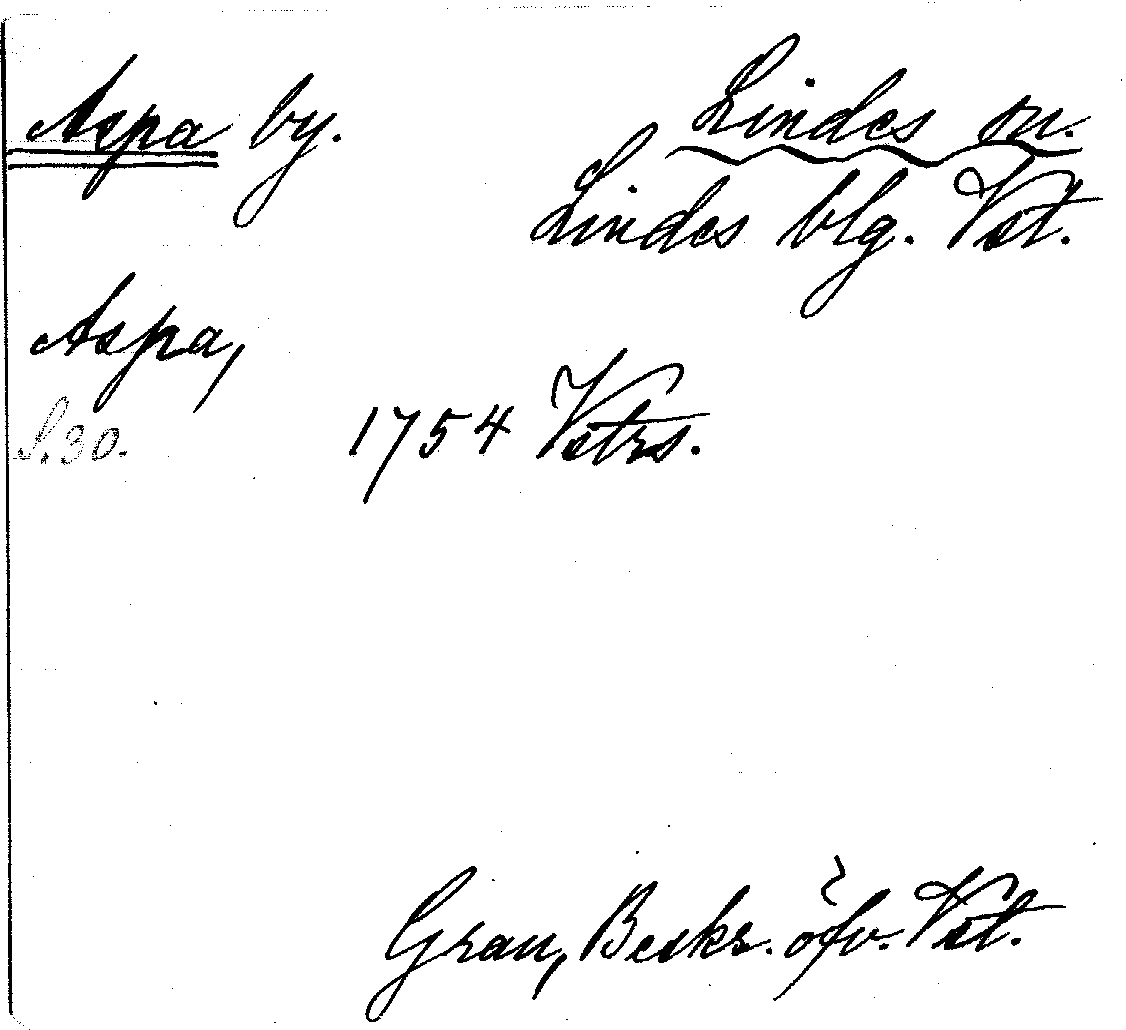 Aspa by. Lindes sn.
Lindes blg. Vst.
Aspa,
S. 30. 1754 Vstrs.
Grau, Beskr. öfv. Vst.